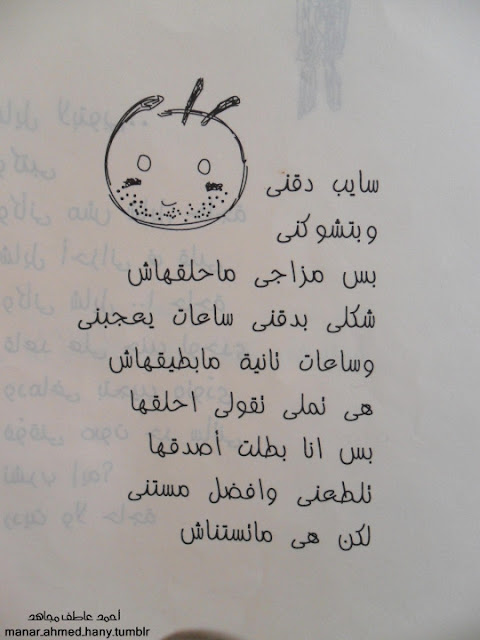 سايب دقنى
وبتشوكنى
بس مزاجى ماحلقهاش
شكلى بدقنى ساعات يعجبنى
وساعات تانية مابطيقهاش
هى تملى تقولى احلقها
بس انا بطلت أصدقها
تلطعنى وافضل مستنى
لكن هى ماتستناش
أحمد عاطف مجاهد
manar.ahmed.hany.tumblr